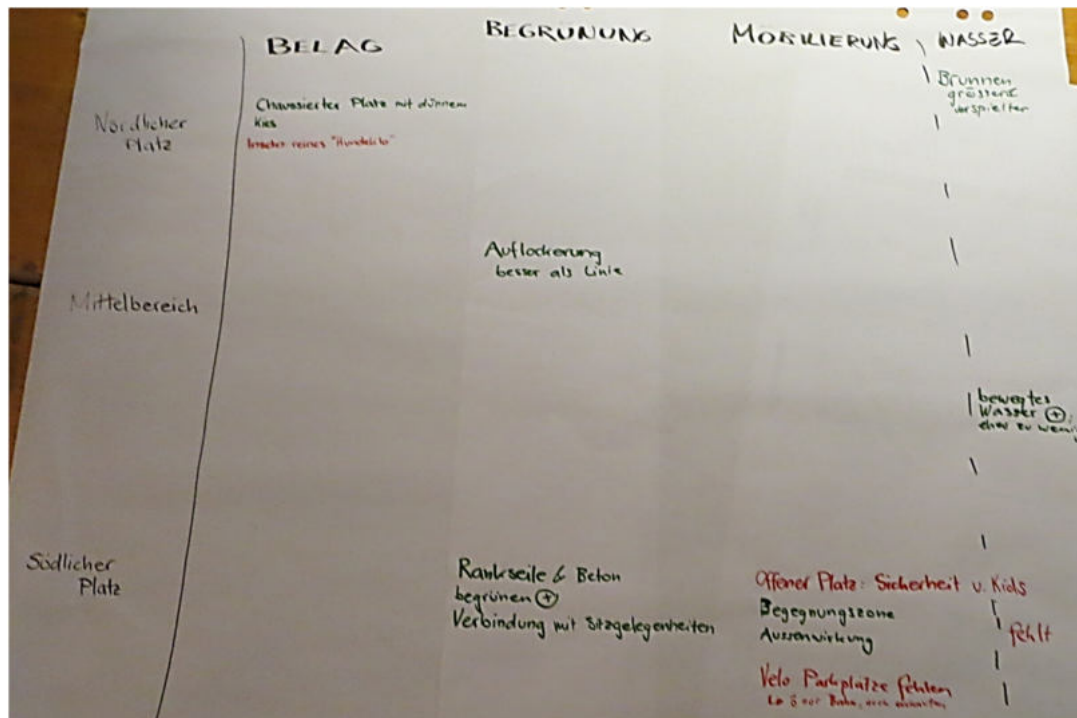 BELAG
BEGRÜNUNG
MOBILIERUNG
WASSER
Nördlicher
Platz
Chaussierter Platz mit dünnem
Kies
reines "Hundeklo"
Brunnen
grösser &
verspielter
Mittelbereich
Auflockerung
besser als Linie
bewegtes
Wasser ⊕,
eher zu wenig
Südlicher
Platz
Rankseile & Beton
begrünen ⊕
Verbindung mit Sitzgelegenheiten
Offener Platz: Sicherheit v. Kids
Begegnungszone
Aussenwirkung
Velo Parkplätze fehlen
fehlt